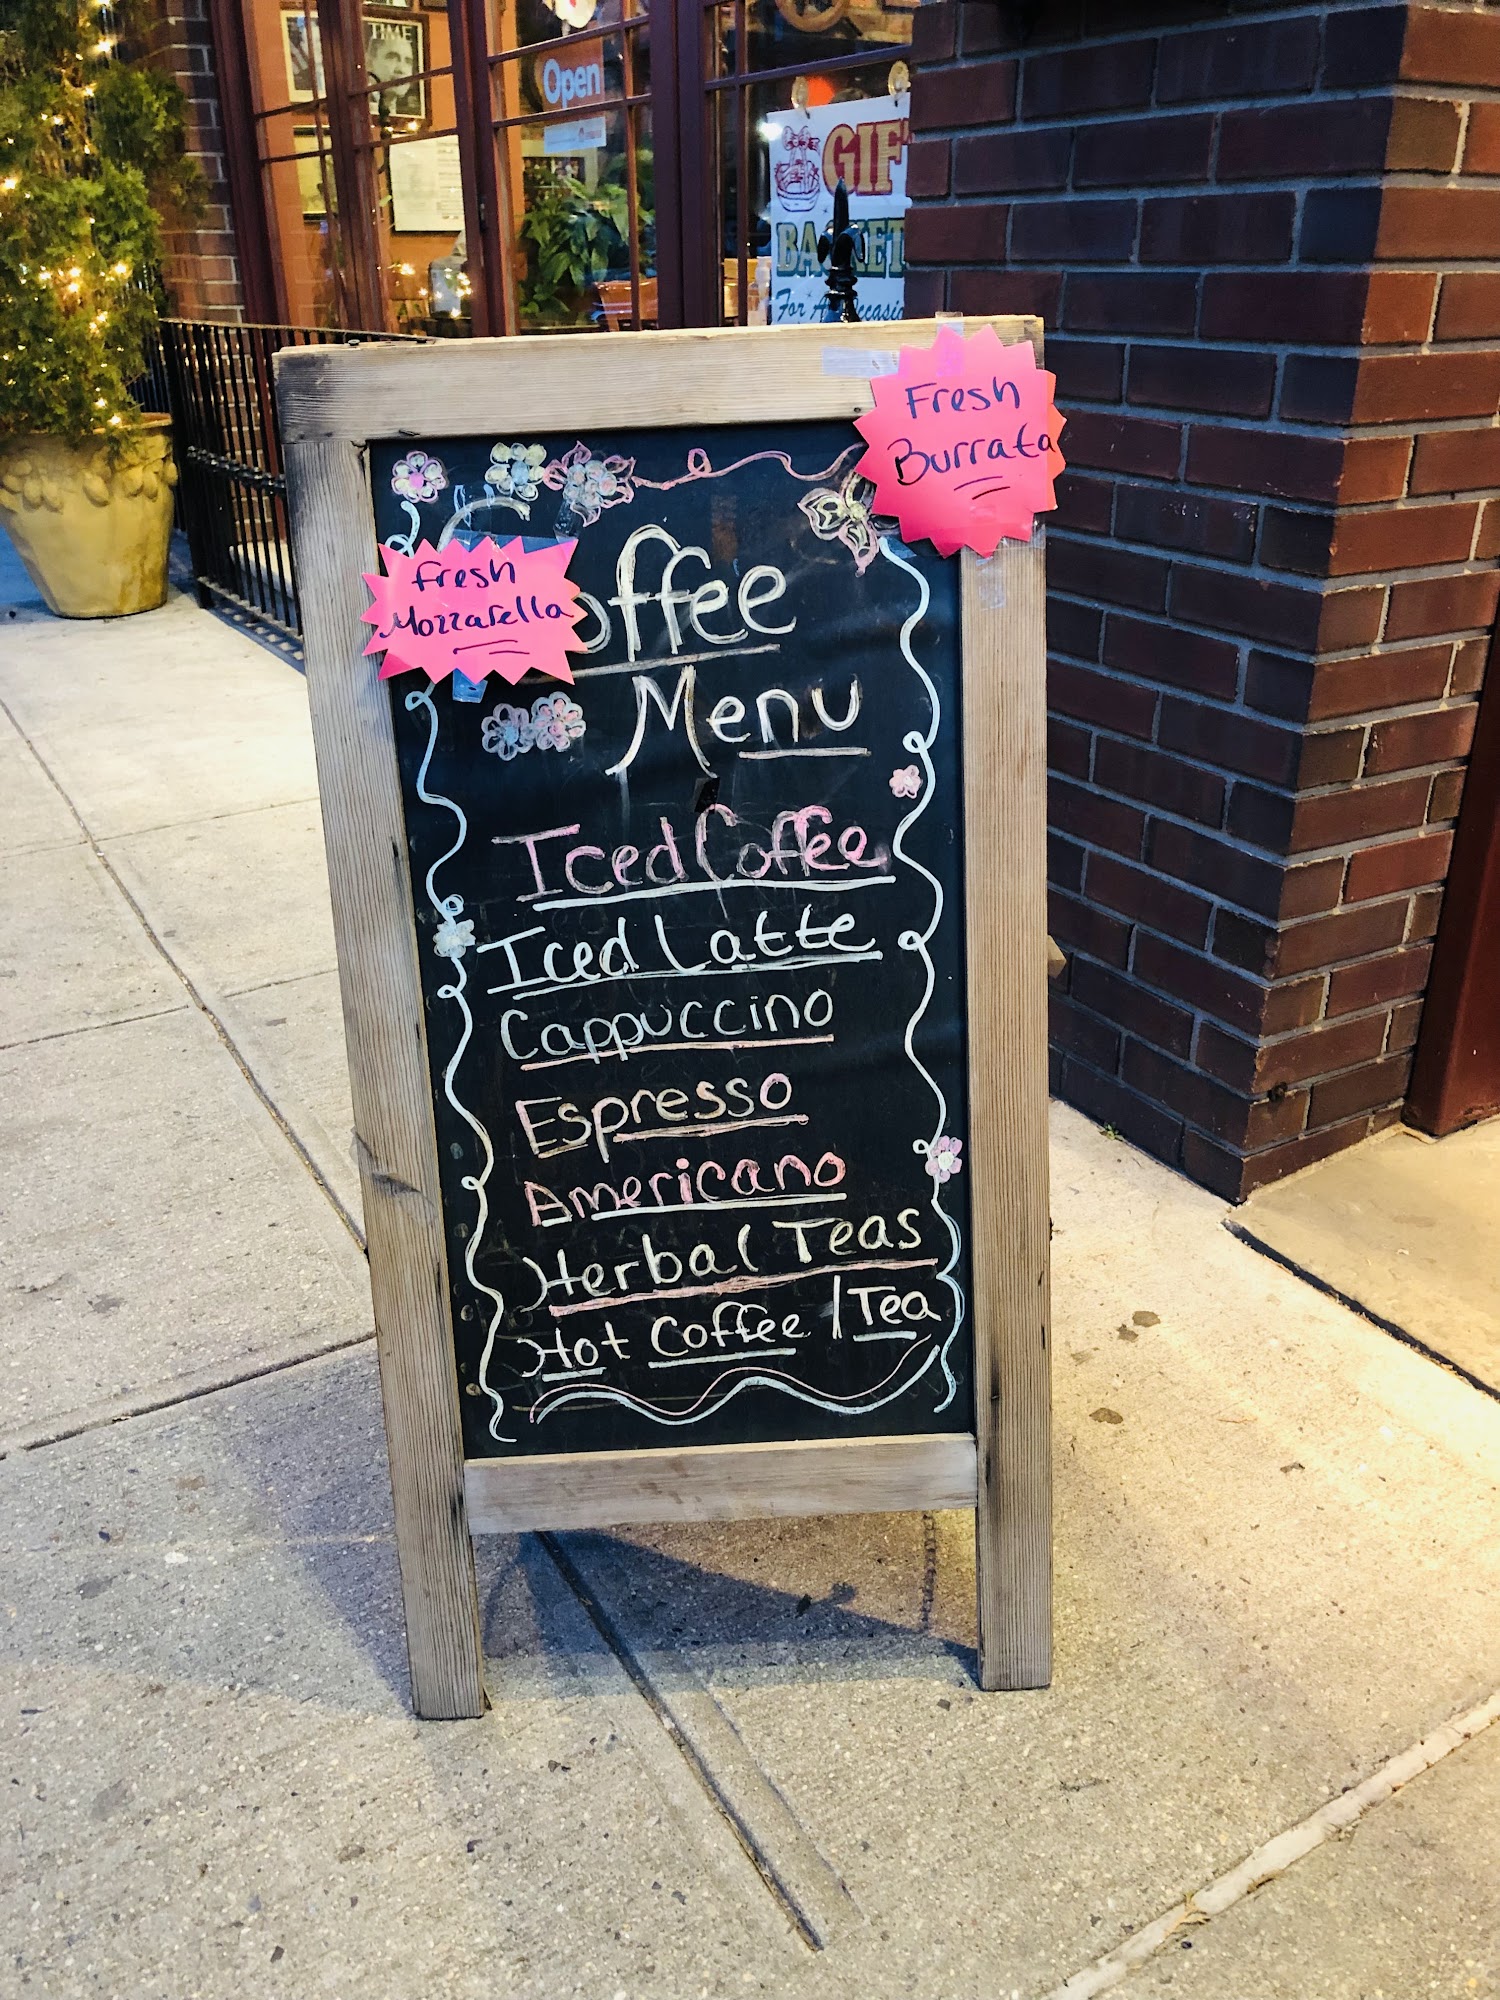 TIME
Open
GIF
BASKET
For A Occasio
Fresh
Burrata
Fresh
Mozzarella
Coffee
Menu
Iced Coffee
Iced Latte
Cappuccino
Espresso
Americano
Herbal Teas
Hot Coffee / Tea